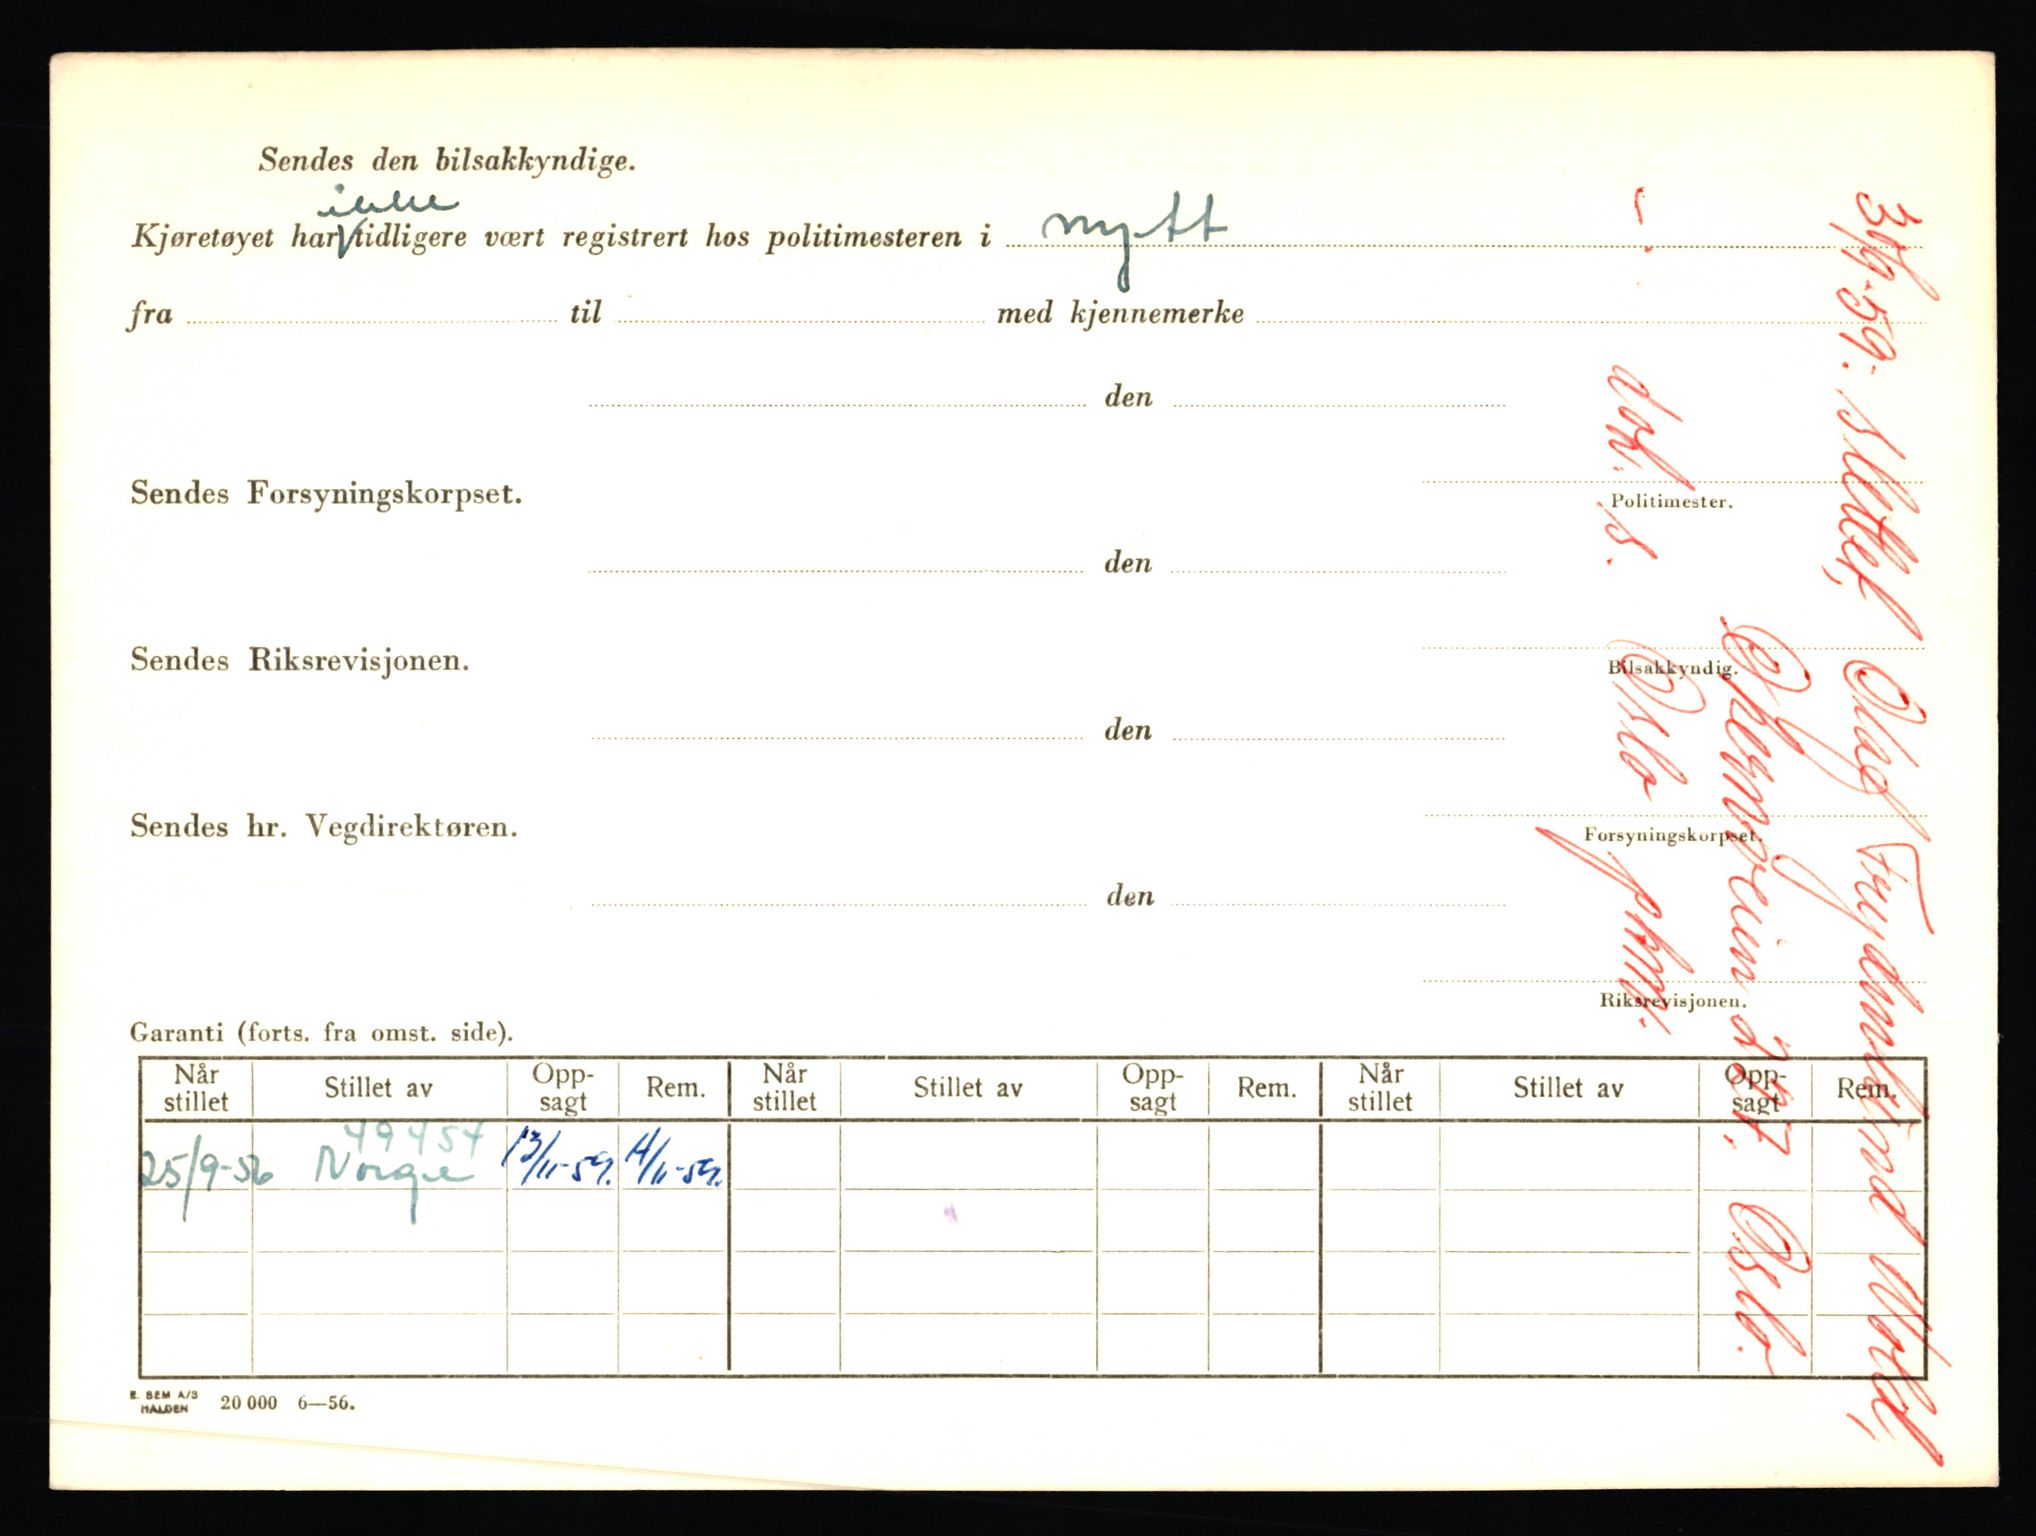 Sendes den bilsakkyndige.
ikke
Kjøretøyet har V tidligere vært registrert hos politimesteren i nytt
fra til med kjennemerke
den
Politimester.
Sendes Forsyningskorpset.
den
Bilsakkyndig.
Sendes Riksrevisjonen.
den
Forsyningskorpset.
Sendes hr. Vegdirektøren.
den
Riksrevisjonen.
Garanti (forts. fra omst. side).
Når stillet Stillet av Opp-sagt Rem. Når stillet Stillet av Opp-sagt Rem. Når stillet Stillet av Opp-sagt Rem.
49454
25/9-56 Norge 13/11-59. 14/11-59.
E. SEM A/S
HALDEN
20 000 6—56.
30/9-59. Slettet, Olaf Frydenlund Vold,
247. Oslo.
dok. s. Oslo pkm.